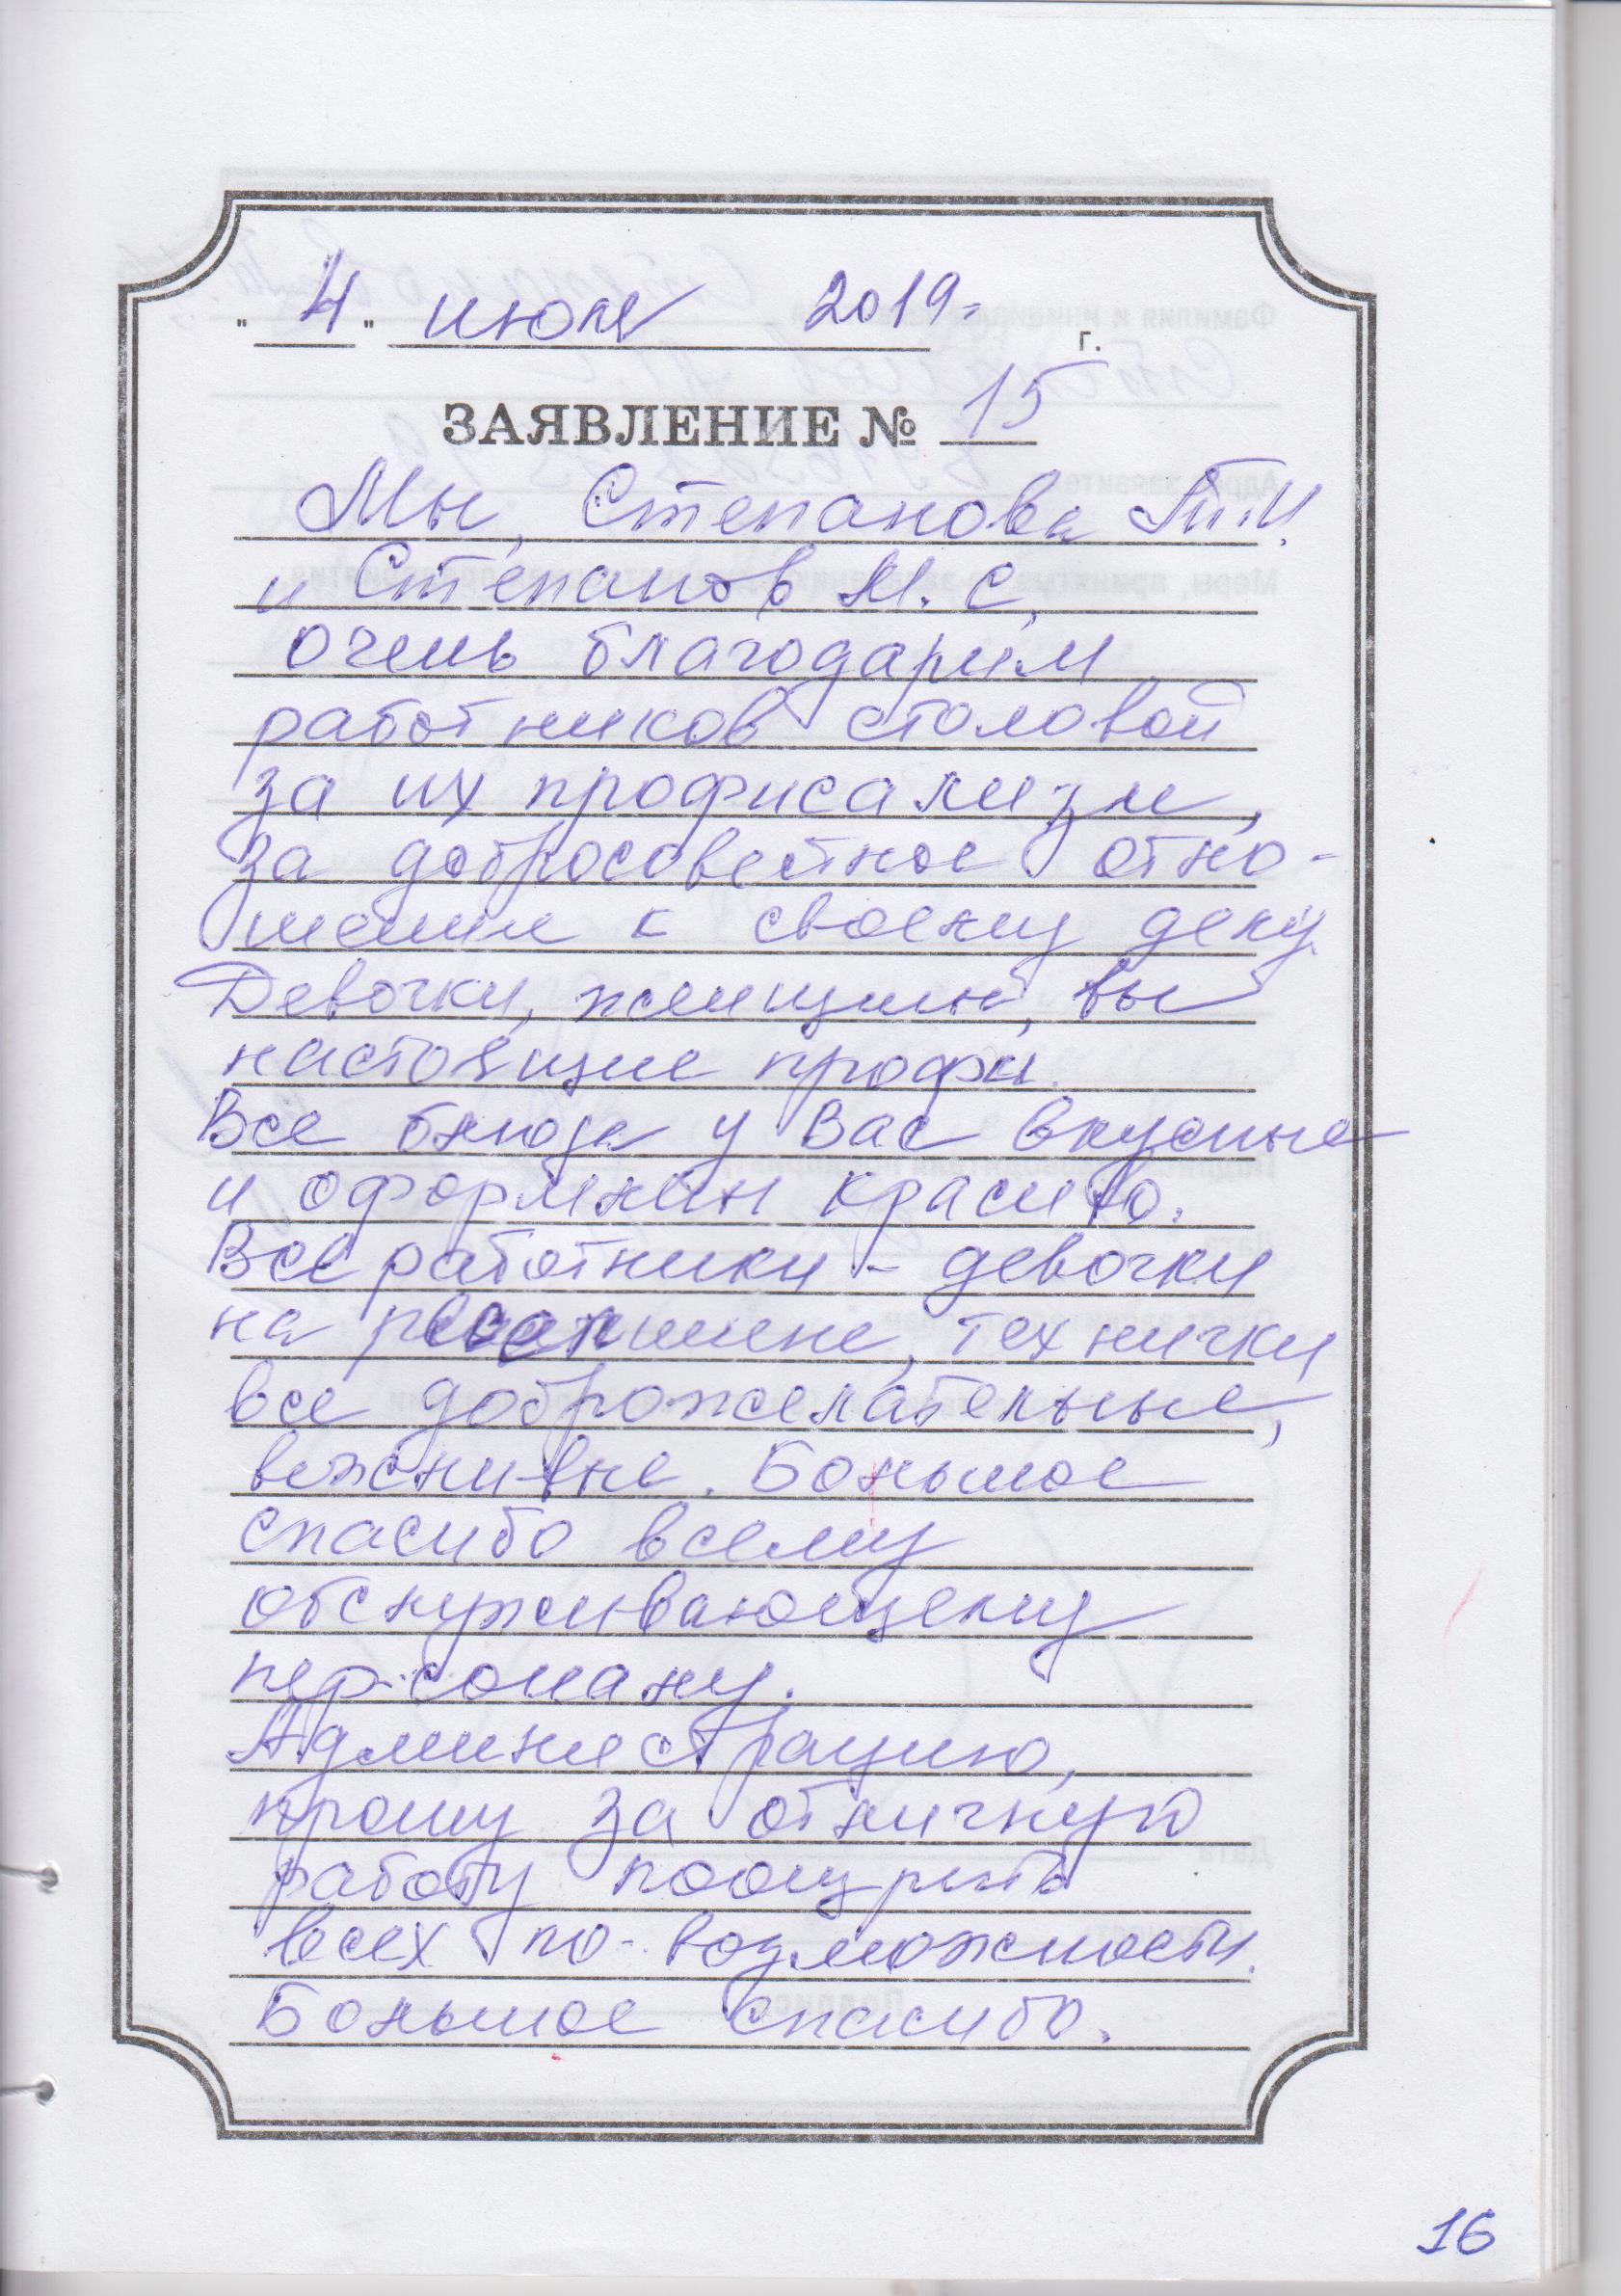 " 4 " июля 2019 г.
ЗАЯВЛЕНИЕ № 15
Мы, Степанова Т.И.
и Степанов М. С.
очень благодарим
работников столовой
за их профисализм,
за добросовестное отно-
шение к своему делу.
Девочки, женщины, вы
настоящие профи.
Все блюда у Вас вкусные
и оформлены красиво.
Все работники - девочки
на ресепшине, технички
все доброжелательные,
вежливые. Большое
спасибо всему
обслуживающему
персоналу.
Администрацию,
прошу за отличную
работу поощрить
всех по-возможности.
Большое спасибо.
16